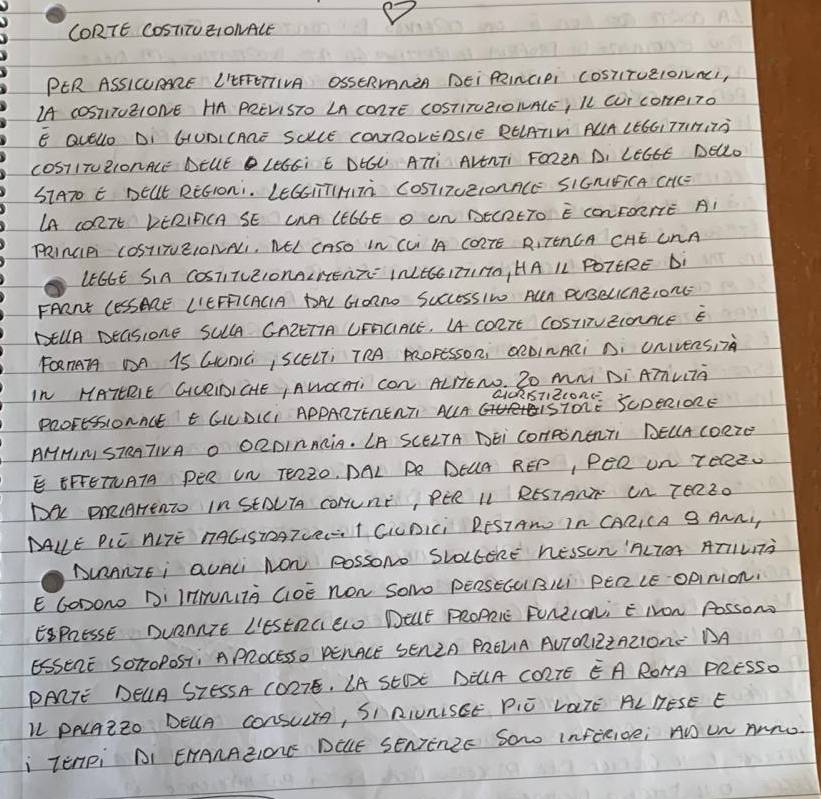 CORTE COSTITUZIONALE
PER ASSICURARE L'EFFETTIVA OSSERVANZA DEI PRINCIPI COSTITUZIONALI,
LA COSTITUZIONE HA PREVISTO LA CORTE COSTITUZIONALE, IL CUI COMPITO
È QUELLO DI GIUDICARE SULLE CONTROVERSIE RELATIVI ALLA LEGGITTIMITÀ
COSTITUZIONALE DELLE LEGGI E DEGLI ATTI AVENTI FORZA DI LEGGE DELLO
STATO E DELLE REGIONI. LEGGITTIMITÀ COSTITUZIONALE SIGNIFICA CHE
LA CORTE VERIFICA SE UNA LEGGE O UN DECRETO È CONFORME AI
PRINCIPI COSTITUZIONALI. NEL CASO IN CUI LA CORTE RITENGA CHE UNA
LEGGE SIA COSTITUZIONALMENTE INLEGGITTIMA, HA IL POTERE DI
FARNE CESSARE L'EFFICACIA DAL GIORNO SUCCESSIVO ALLA PUBBLICAZIONE
DELLA DECISIONE SULLA GAZETTA UFFICIALE. LA CORTE COSTITUZIONALE È
FORMATA DA 15 GIUDICI, SCELTI TRA PROFESSORI ORDINARI DI UNIVERSITÀ
IN MATERIE GIURIDICHE, AVVOCATI CON ALMENO 20 ANNI DI ATTIVITÀ
PROFESSIONALE E GIUDICI APPARTENENTI ALLA GIURISTIZIONE SUPERIORE
AMMINISTRATIVA O ORDINARIA. LA SCELTA DEI COMPONENTI DELLA CORTE
È EFFETTUATA PER UN TERZO DAL PR DELLA REP, PER UN TERZO
DAL PARLAMENTO IN SEDUTA COMUNE, PER IL RESTANTE UN TERZO
DALLE PIÙ ALTE MAGISTRATURE. I GIUDICI RESTANO IN CARICA 9 ANNI,
DURANTE I QUALI NON POSSONO SVOLGERE NESSUN'ALTRA ATTIVITÀ
E GODONO DI IMMUNITÀ CIOÈ NON SONO PERSEGUIBILI PER LE OPINIONI
ESPRESSE DURANTE L'ESERCIZIO DELLE PROPRIE FUNZIONI E NON POSSONO
ESSERE SOTTOPOSTI A PROCESSO PENALE SENZA PREVIA AUTORIZZAZIONE DA
PARTE DELLA STESSA CORTE. LA SEDE DELLA CORTE È A ROMA PRESSO
IL PALAZZO DELLA CONSULTA, SI RIUNISCE PIÙ VOLTE AL MESE E
I TEMPI DI EMANAZIONE DELLE SENTENZE SONO INFERIORI AD UN ANNO.